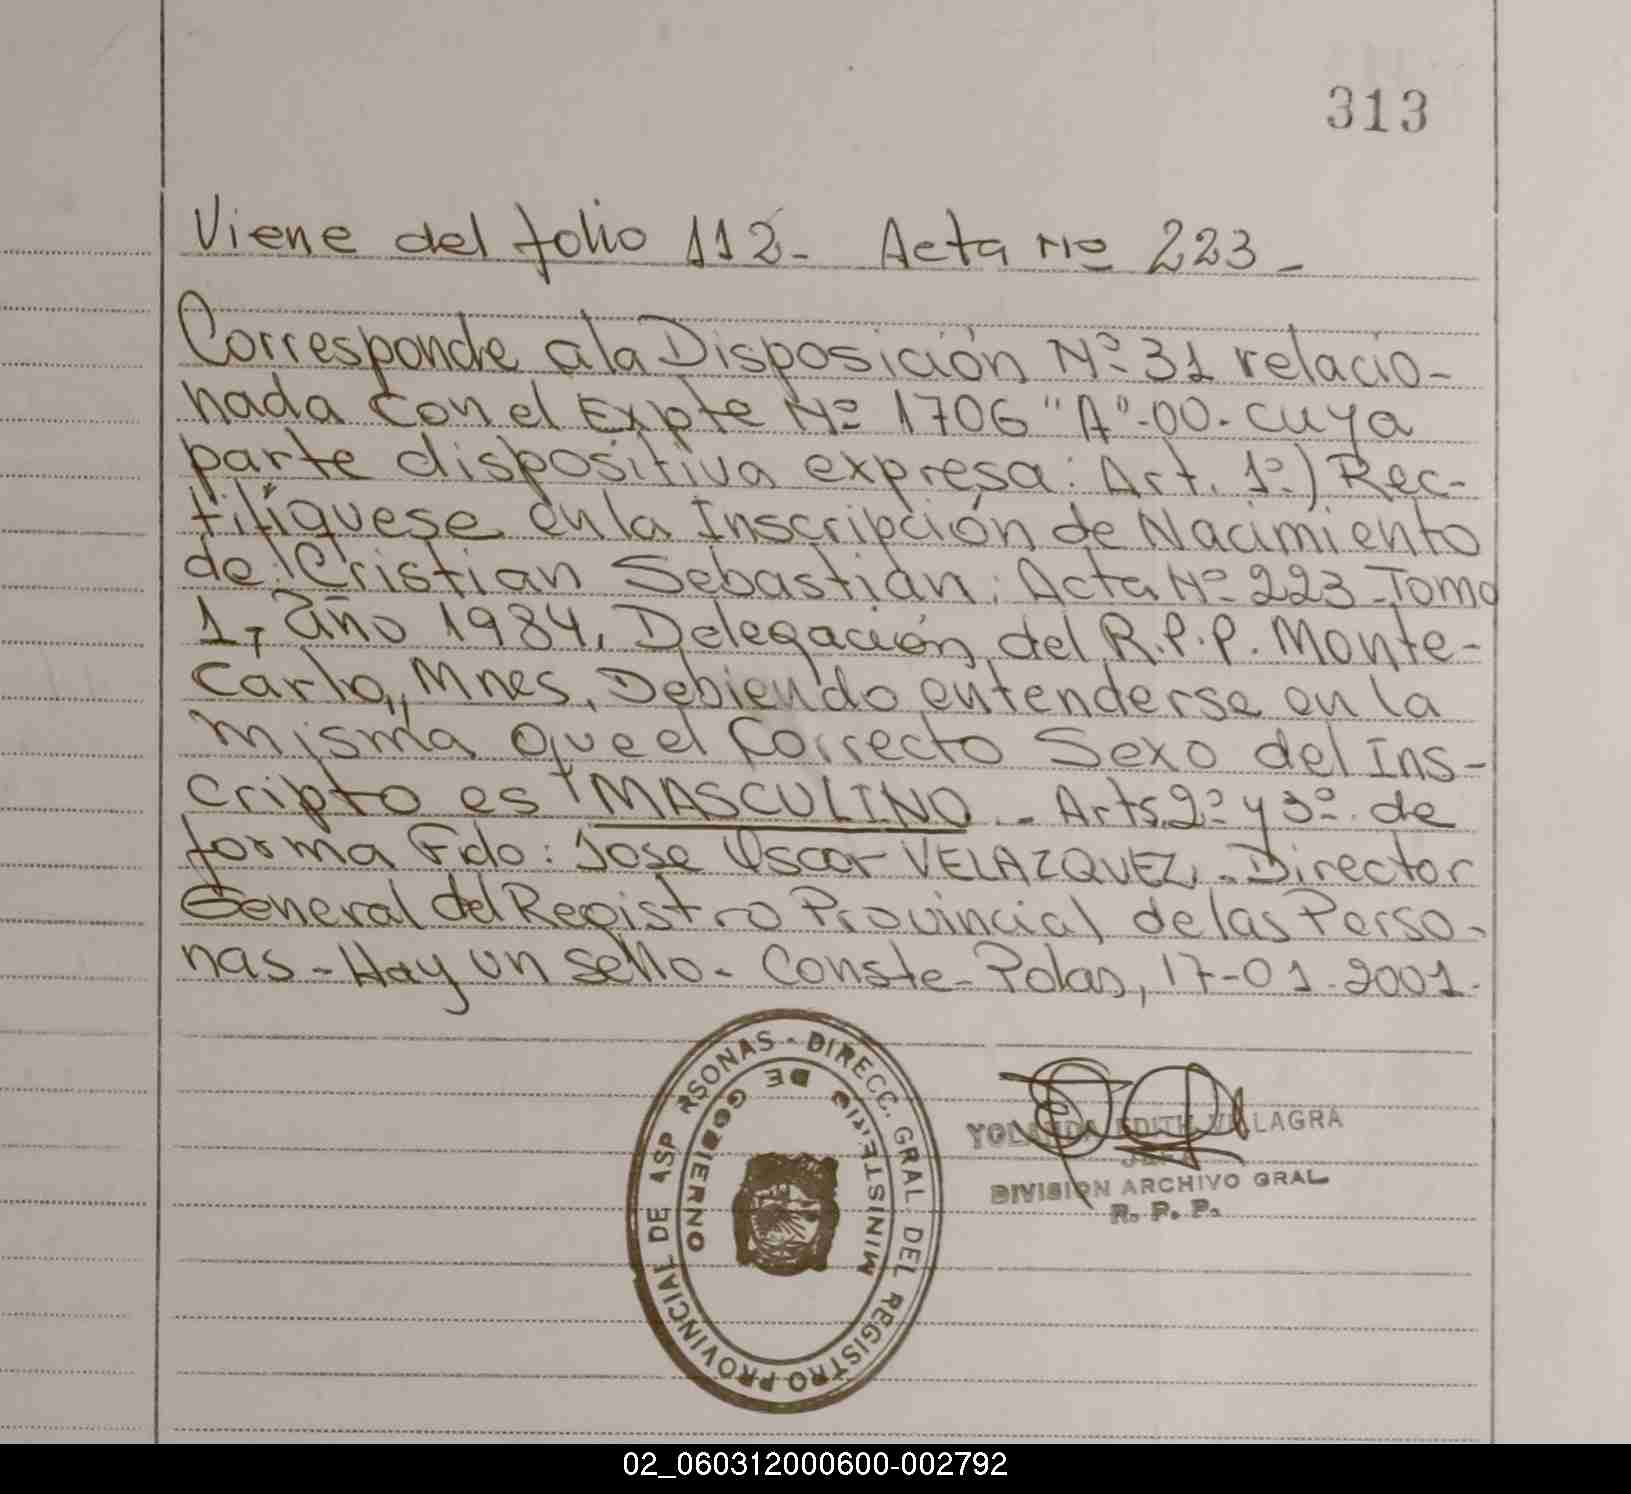 313
Viene del folio 112- Acta Nº 223-
Corresponde a la Disposición Nº 31 relacio-
nada con el Expte Nº 1706 "A"-00- cuya
parte dispositiva expresa: Art. 1º) Rec-
tifíquese en la Inscripción de Nacimiento
de: Cristian Sebastián; Acta Nº 223-Tomo
1, año 1984, Delegación del R.P.P. Monte-
Carlo, Mnes, Debiendo entenderse en la
misma que el Correcto Sexo del Ins-
cripto es MASCULINO.- Arts 2º y 3º de
forma Fdo: Jose Oscar VELAZQUEZ.-Director
General del Registro Provincial de las Perso-
nas-Hay un sello- Conste-Pdas, 17-01-2001-
DIRECC. GRAL DEL REGISTRO PROVINCIAL DE
MINISTERIO DE GOBIERNO
YOLANDA EDITH VILLAGRA
JEFA
DIVISION ARCHIVO GRAL
R. P. P.
02_060312000600-002792